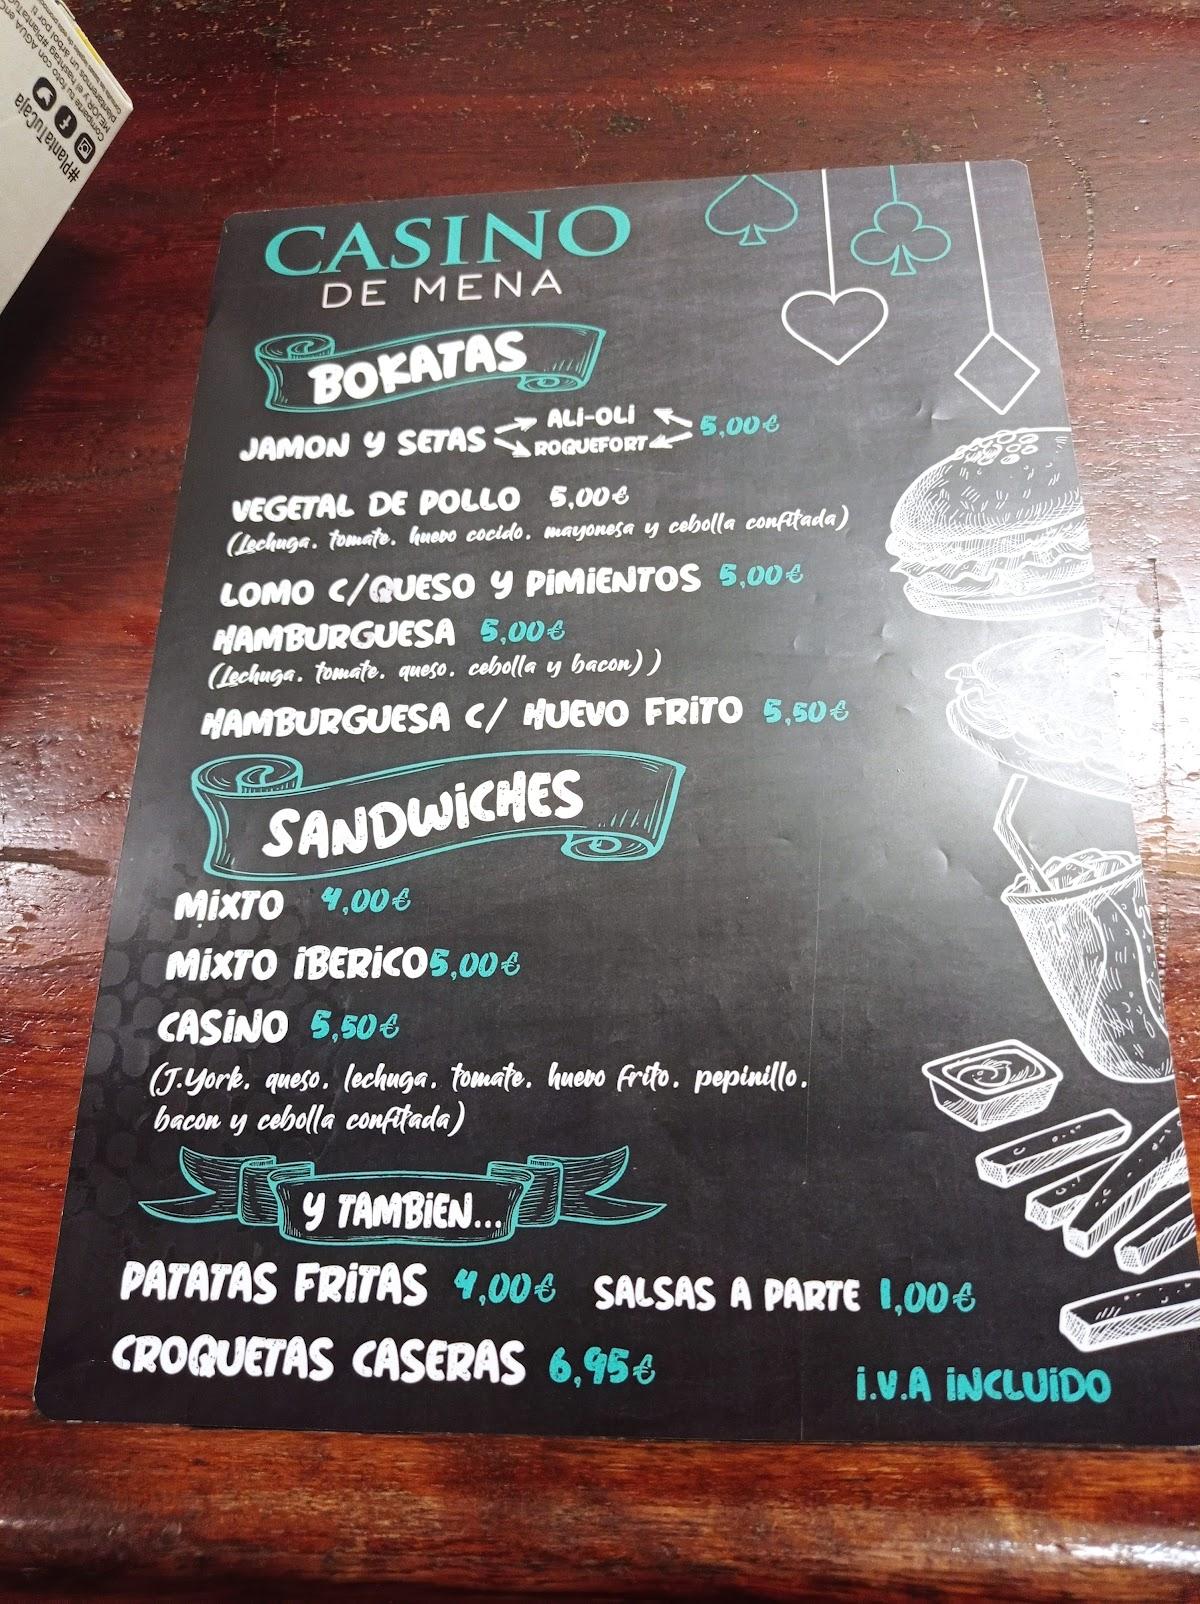 #PlantaTuCaja
Comparte tu foto con AGUA en
MEJOR y el hashtag #PlantaTu
plantaremos un árbol por ti
CASINO
DE MENA
BOKATAS
JAMON Y SETAS ALI-OLI ROQUEFORT 5,00€
VEGETAL DE POLLO 5,00€
(Lechuga, tomate, huevo cocido, mayonesa y cebolla confitada)
LOMO C/QUESO Y PIMIENTOS 5,00€
HAMBURGUESA 5,00€
(Lechuga, tomate, queso, cebolla y bacon))
HAMBURGUESA C/ HUEVO FRITO 5,50€
SANDWICHES
MIXTO 4,00€
MIXTO IBERICO 5,00€
CASINO 5,50€
(J.York, queso, lechuga, tomate, huevo frito, pepinillo,
bacon y cebolla confitada)
Y TAMBIEN...
PATATAS FRITAS 4,00€ SALSAS A PARTE 1,00€
CROQUETAS CASERAS 6,95€
I.V.A INCLUIDO